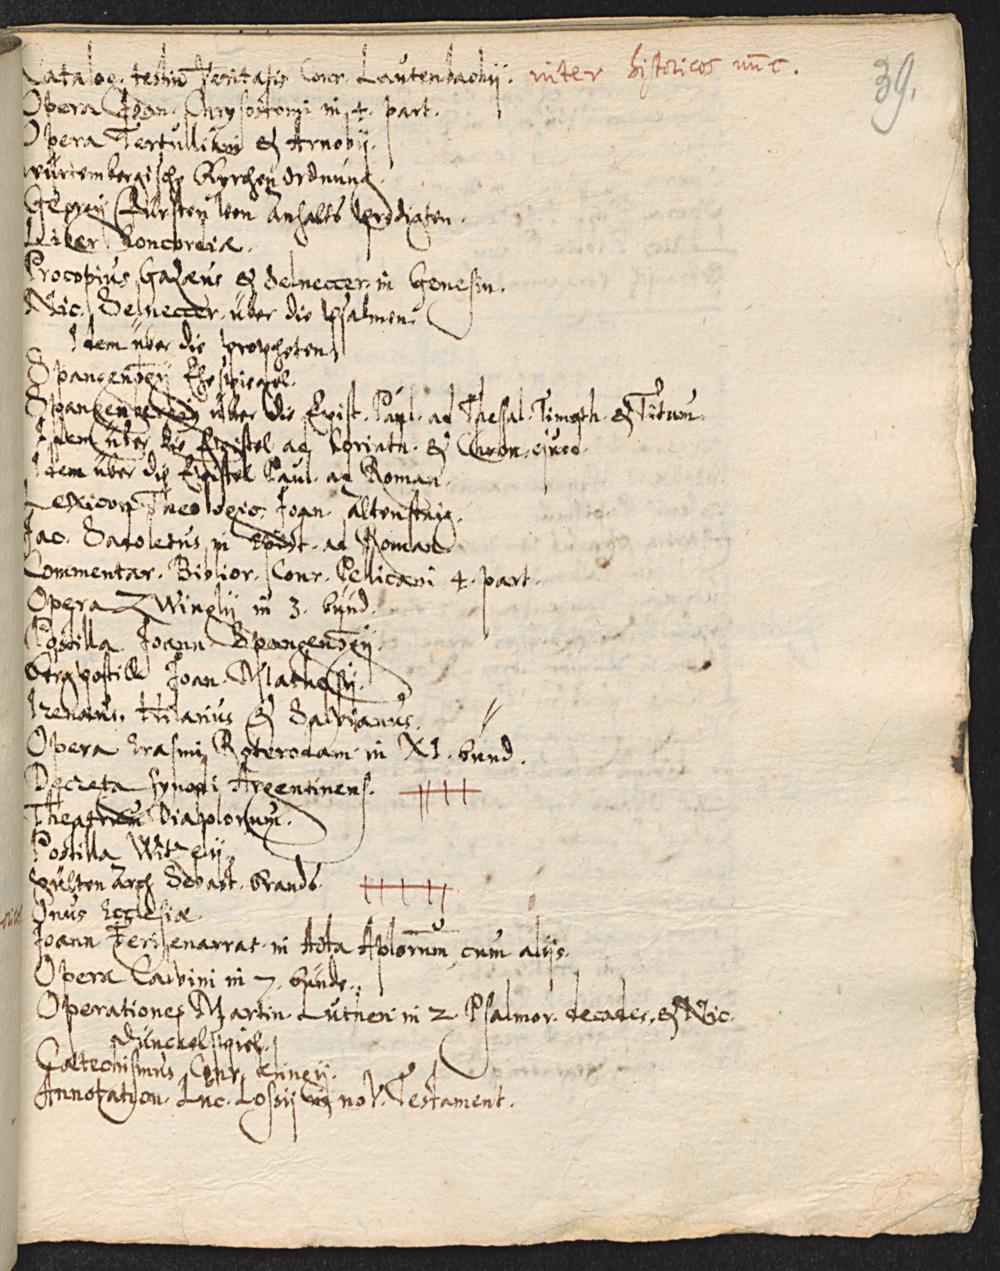 Catalog. testiū Veritatis Conr. Lautenbachij. inter historicos nūc.
39.
Opera Joan. Chrysostomi in 4. part.
Opera Tertulliani & Arnobij.
Würtembergische Kyrchen Ordnung.
Georgij Fürsten von Anhalts predigten.
Liber Concordiæ.
Procopius Gazæus & Selneccer. in Genesin.
Nic. Selneccer. über die Psalmen.
Idem über die propheten.
Spangenbergij Ehespiegel.
Spangenbergij über die Epist. Paul. ad Thessal. Timoth. & Titum.
Idem über die Epistel ad Corinth. & Chron. eiusd.
Idem über die Epistel Paul. ad Roman.
Lexicon Theologic. Joan. Altenstaig.
Jac. Sadoletus in Epist. ad Roman.
Commentar. Biblior. Conr. Pellicani 4. part.
Opera Zwinglij in 3. bünd.
Postilla Joann. Spangenbgij.
Bergpostill Joan. Mathesij.
Irenæus, Hilarius & Salvianus.
Opera Erasmi Roterodam. in XI. bünd.
Decreta synodi Argentinens.
Theatrum Diabolorum.
Postilla Witzelij.
Sebast. Brands.
Onus Ecclesiæ
Joann Feri enarrat. in Acta Aplorum cum alijs.
Opera Calvini in 7. bünde.
Operationes Martin. Lutheri in 2 Psalmor. decades, & Nic.
Catechismus Conr. Clingij.
Annotation. Luc. Lossij in nov. Testament.